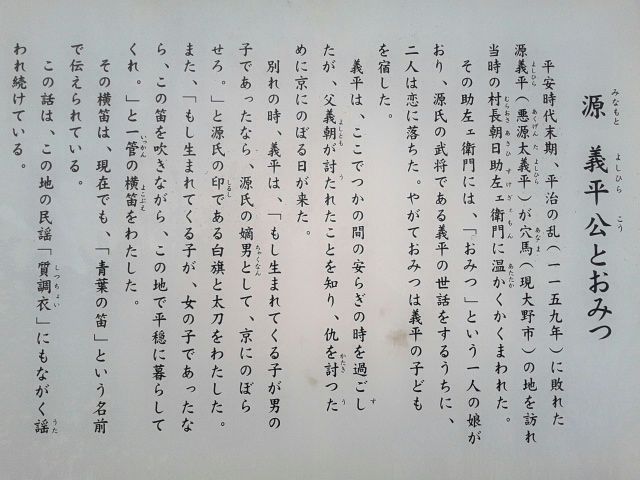 源　義平公とおみつ
平安時代末期、平治の乱（一一五九年）に敗れた
源義平（悪源太義平）が穴馬（現大野市）の地を訪れ
当時の村長朝日助左ェ衛門に温かくかくまわれた。
その助左ェ衛門には、「おみつ」という一人の娘が
おり、源氏の武将である義平の世話をするうちに、
二人は恋に落ちた。やがておみつは義平の子ども
を宿した。
義平は、ここでつかの間の安らぎの時を過ごし
たが、父義朝が討たれたことを知り、仇を討つた
めに京にのぼる日が来た。
別れの時、義平は、「もし生まれてくる子が男の
子であったなら、源氏の嫡男として、京にのぼら
せろ。」と源氏の印である白旗と太刀をわたした。
また、「もし生まれてくる子が、女の子であったな
ら、この笛を吹きながら、この地で平穏に暮らして
くれ。」と一管の横笛をわたした。
その横笛は、現在でも、「青葉の笛」という名前
で伝えられている。
この話は、この地の民謡「質調衣」にもながく謡
われ続けている。